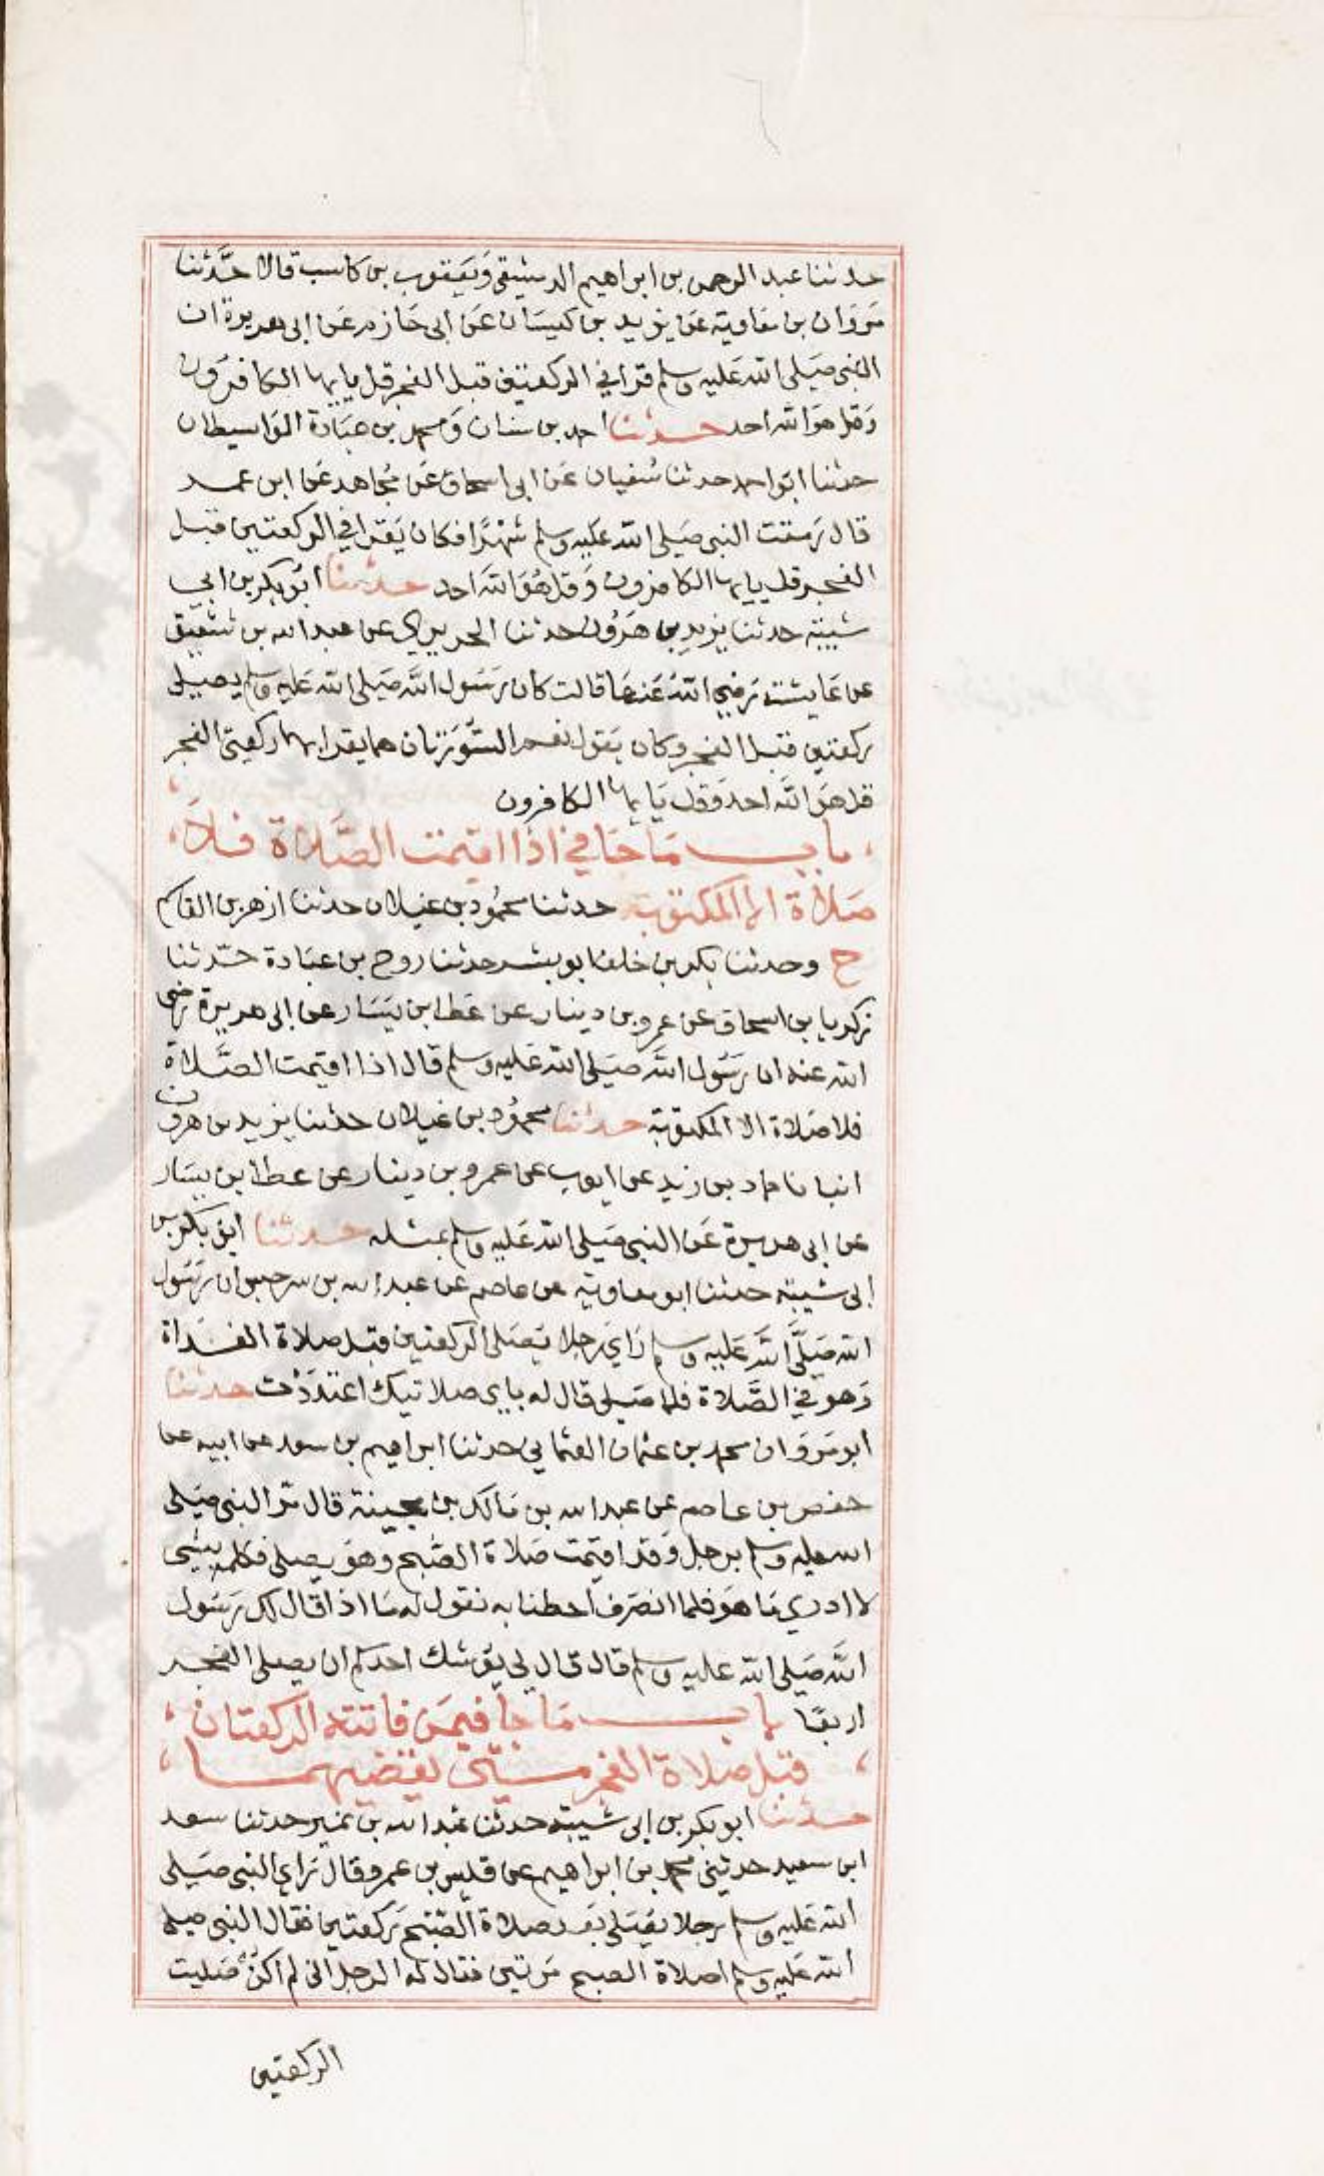 حدثنا عبد الرحمن بن ابراهيم الدمشقي ويعقوب بن كاسب قالا حدثنا
مروان بن معاوية عن يزيد بن كيسان عن ابي حازم عن ابي هريرة ان
النبي صلى الله عليه وسلم قرا في الركعتين قبل الفجر قل يايها الكافرون
وقل هو الله احد حدثنا احمد بن سنان ومحمد بن عبادة الواسطيان
حدثنا ابو احمد حدثنا سفيان عن ابي اسحاق عن مجاهد عن ابن عمر
قال رمقت النبي صلى الله عليه وسلم شهرا فكان يقرا في الركعتين قبل
الفجر قل يايها الكافرون وقل هو الله احد حدثنا ابو بكر بن ابي
شيبة حدثنا يزيد بن هرون حدثنا الجريري عن عبد الله بن شقيق
عن عايشة رضي الله عنها قالت كان رسول الله صلى الله عليه وسلم يصلي
ركعتين قبل الفجر وكان يقول نعم السورتان هما يقرا بهما ركعتي الفجر
قل هو الله احد وقل يايها الكافرون
باب ما جا في اذا اقيمت الصلاة فلا
صلاة الا المكتوبة حدثنا محمود بن غيلان حدثنا ازهر بن القاسم
ح وحدثنا بكر بن خلف ابو بشر حدثنا روح بن عبادة حدثنا
زكريا بن اسحاق عن عمرو بن دينار عن عطا بن يسار عن ابي هريرة رضي
الله عنه ان رسول الله صلى الله عليه وسلم قال اذا اقيمت الصلاة
فلا صلاة الا المكتوبة حدثنا محمود بن غيلان حدثنا يزيد بن هرون
انبانا حماد بن زيد عن ايوب عن عمرو بن دينار عن عطا بن يسار
عن ابي هريرة عن النبي صلى الله عليه وسلم بمثله حدثنا ابو بكر بن
ابي شيبة حدثنا ابو معاوية عن عاصم عن عبد الله بن سرجس ان رسول
الله صلى الله عليه وسلم راي رجلا يصلي الركعتين قبل صلاة الغداة
وهو في الصلاة فلما صلى قال له باي صلاتيك اعتددت حدثنا
ابو مروان محمد بن عثمان العثماني حدثنا ابراهيم بن سعد عن ابيه عن
حفص بن عاصم عن عبد الله بن مالك بن بحينة قال مر النبي صلى
الله عليه وسلم برجل وقد اقيمت صلاة الصبح وهو يصلي فكلمه بشي
لا ادري ما هو فلما انصرف احطنا به نقول له ما اذا قال لك رسول
الله صلى الله عليه وسلم قال قال لي يوشك احدكم ان يصلي الفجر
اربعا باب ما جا فيمن فاتته الركعتان
قبل صلاة الفجر متى يقضيهما
حدثنا ابو بكر بن ابي شيبة حدثنا عبد الله بن نمير حدثنا سعد
ابن سعيد حدثني محمد بن ابراهيم عن قيس بن عمرو قال راي النبي صلى
الله عليه وسلم رجلا يصلي بعد صلاة الصبح ركعتين فقال النبي صلى
الله عليه وسلم اصلاة الصبح مرتين فقال له الرجل اني لم اكن صليت
الركعتين